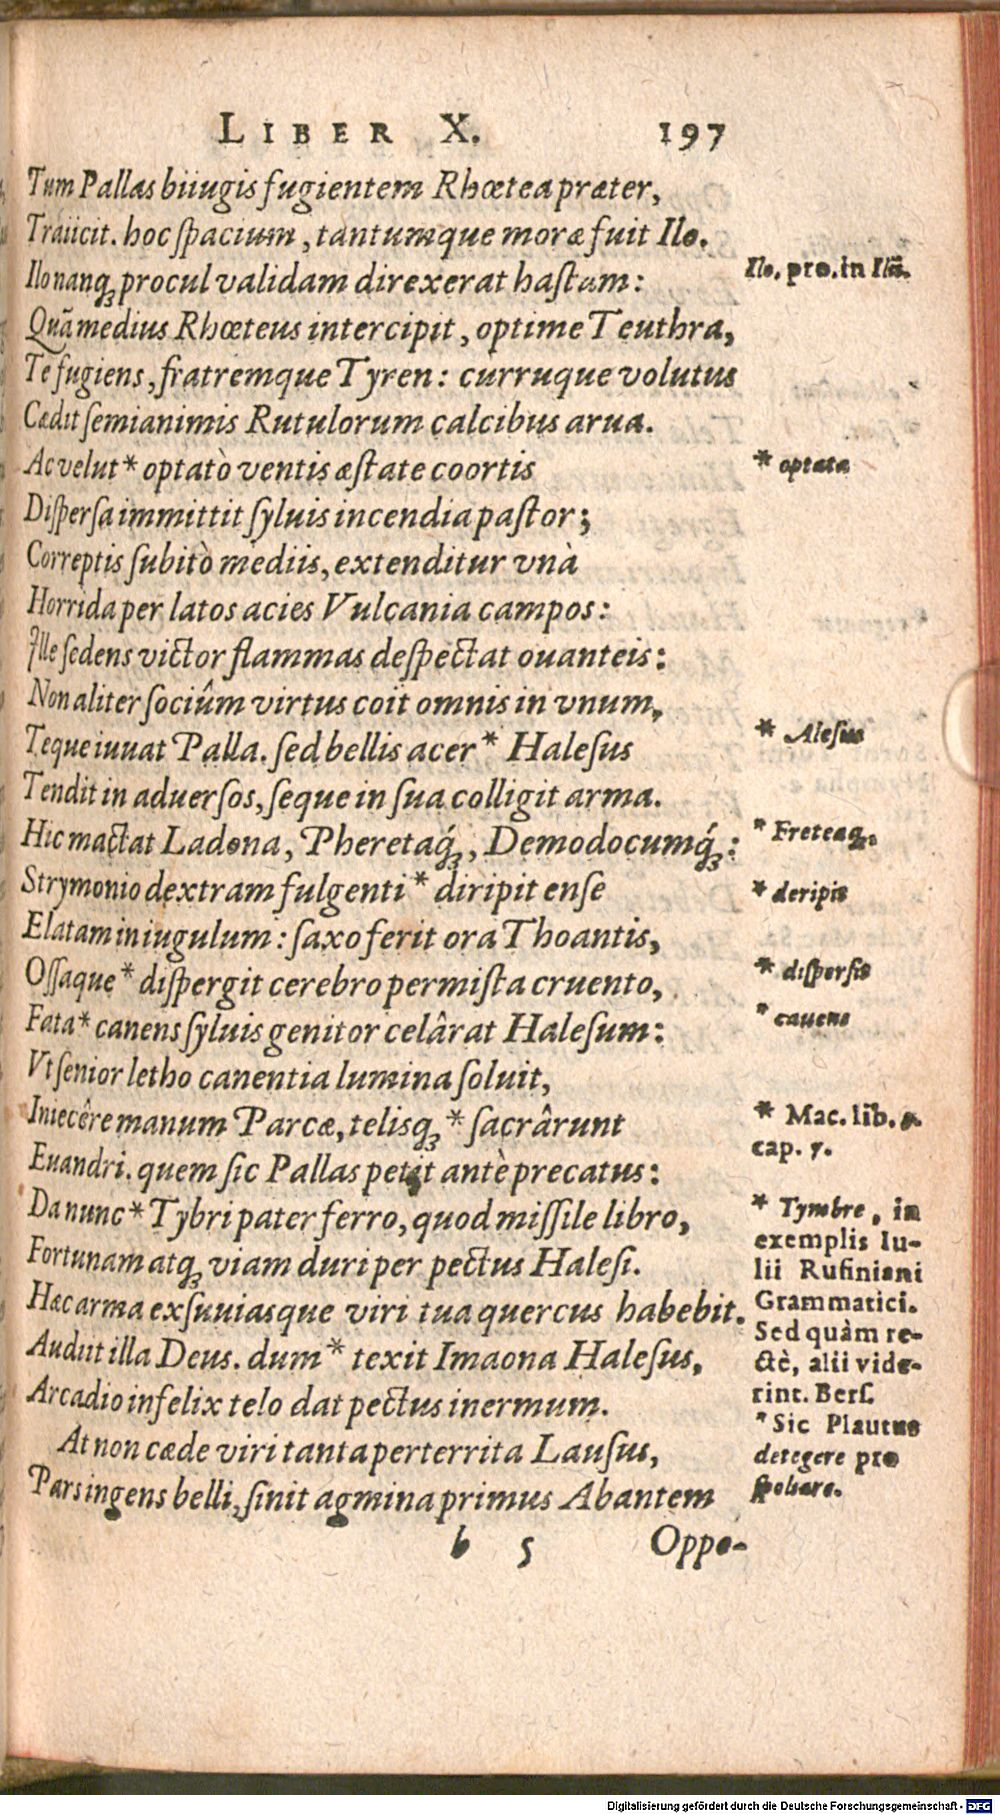 LIBER X. 197
Tum Pallas biiugis fugientem Rhœtea præter,
Traiicit. hoc ſpacium, tantumque moræ fuit Ilo.
Ilo nanq; procul validam direxerat haſtam:
Quã medius Rhœteus intercipit, optime Teuthra,
Te fugiens, fratremque Tyren: curruque volutus
Cædit ſemianimis Rutulorum calcibus arua.
Ac velut* optatò ventis æſtate coortis
Diſperſa immittit ſyluis incendia paſtor;
Correptis ſubitò mediis, extenditur vnà
Horrida per latos acies Vulcania campos:
Ille ſedens victor flammas deſpectat ouanteis:
Non aliter ſociûm virtus coit omnis in vnum,
Teque iuuat Palla. ſed bellis acer* Haleſus
Tendit in aduerſos, ſeque in ſua colligit arma.
Hic mactat Ladona, Pheretaq́;, Demodocumq́;:
Strymonio dextram fulgenti* diripit enſe
Elatam in iugulum: ſaxo ferit ora Thoantis,
Oſſaque* diſpergit cerebro permiſta cruento,
Fata* canens ſyluis genitor celârat Haleſum:
Vt ſenior letho canentia lumina ſoluit,
Iniecêre manum Parcæ, telisq;* ſacrârunt
Euandri. quem ſic Pallas petit antè precatus:
Da nunc* Tybri pater ferro, quod miſſile libro,
Fortunam atq; viam duri per pectus Haleſi.
Hæc arma exſuuiasque viri tua quercus habebit.
Audiit illa Deus. dum* texit Imaona Haleſus,
Arcadio infelix telo dat pectus inermum.
At non cæde viri tanta perterrita Lauſus,
Pars ingens belli, ſinit agmina primus Abantem
b 5 Oppo-
Ilo. pro. in Ilũ.
* optata
* Aleſus
* Freteaq;.
* deripit
* diſperſit
* cauens
* Mac. lib.
cap. 7.
* Tymbre, in
exemplis Iu-
lii Rufiniani
Grammatici.
Sed quàm re-
ctè, alii vide-
rint. Berſ.
* Sic Plautus
detegere pro
ſpoliare.
Digitalisierung gefördert durch die Deutsche Forschungsgemeinschaft - DFG